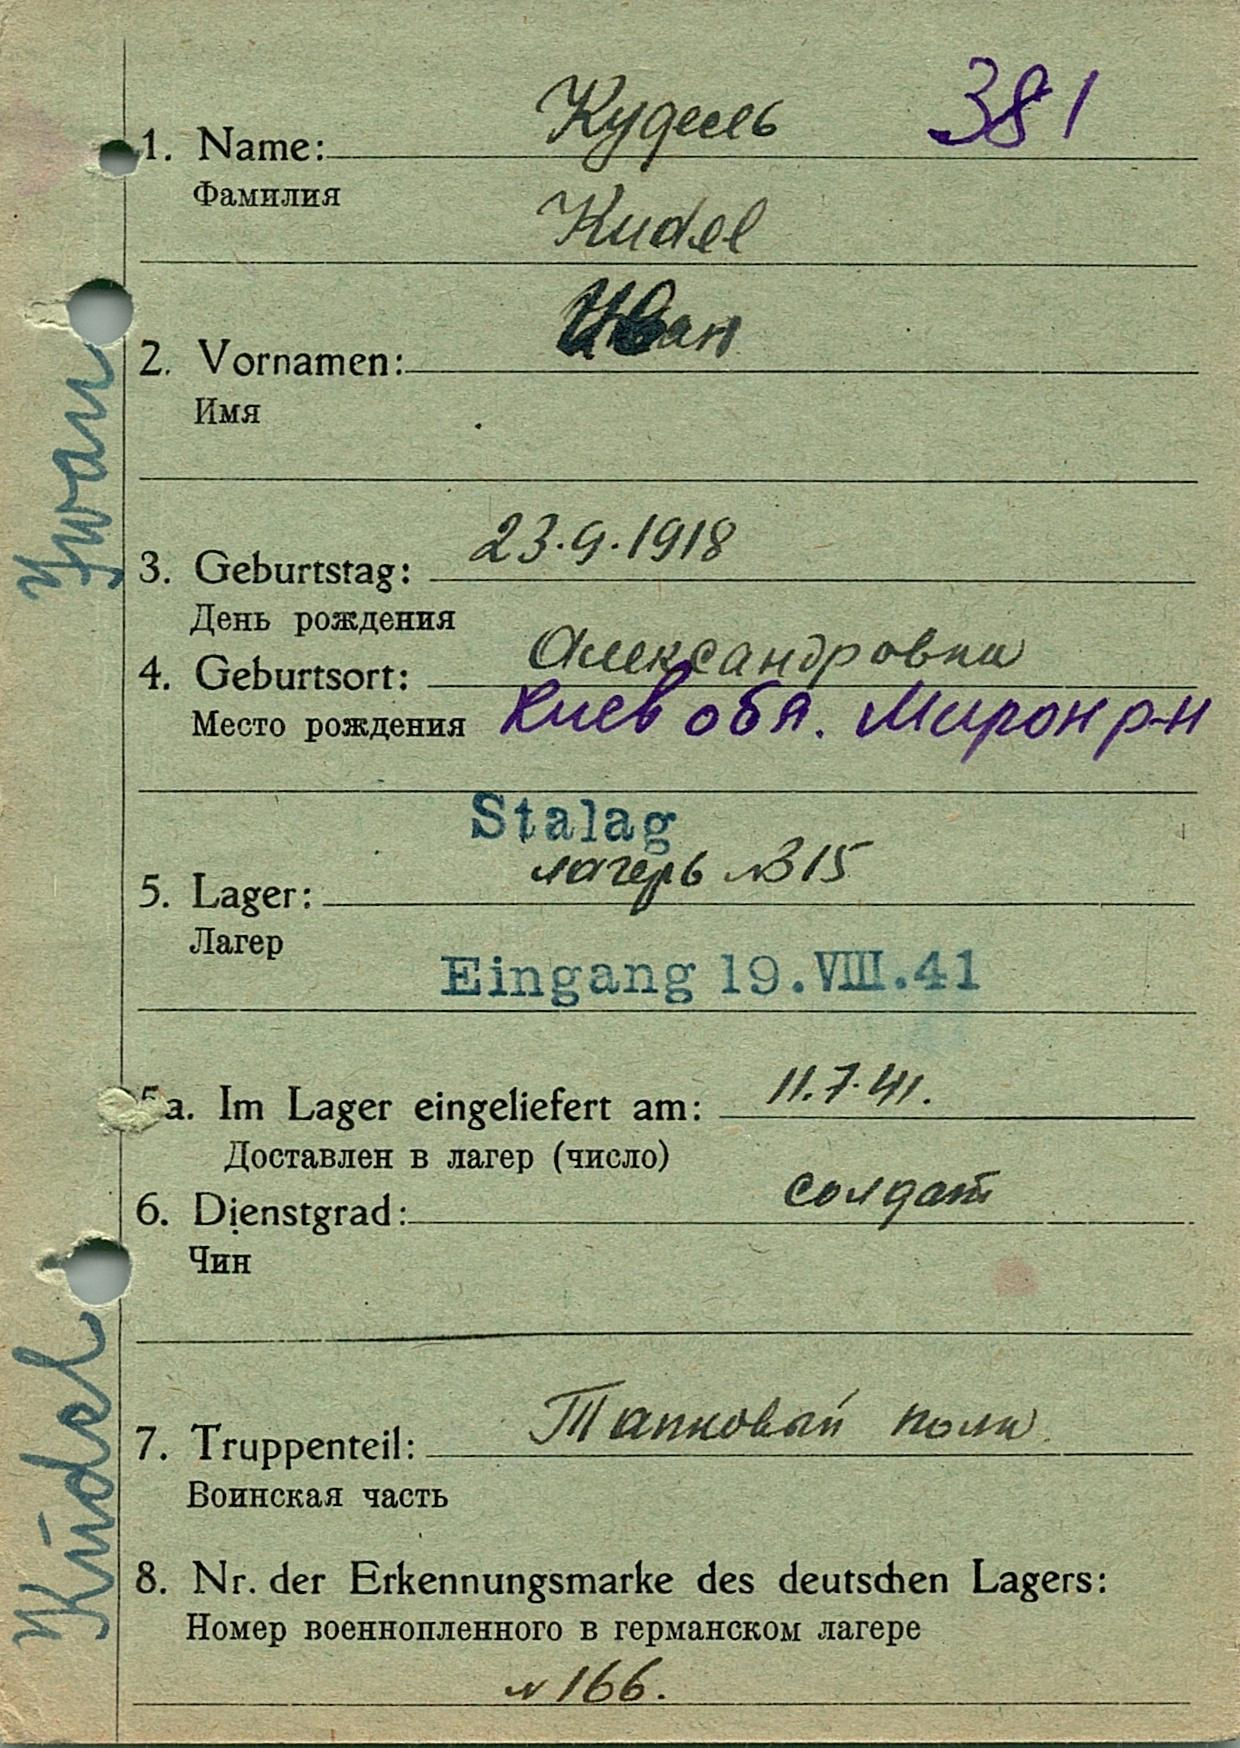 Кудель 381
1. Name:
Фамилия
Kudel
Иван
2. Vornamen:
Имя
Iwan
23.9.1918
3. Geburtstag:
День рождения
Александровка
4. Geburtsort:
Место рождения Киев обл. Мирон р-н
Stalag
лагерь №315
5. Lager:
Лагер
Eingang 19.VIII.41
5a. Im Lager eingeliefert am: 11.7.41.
Доставлен в лагер (число)
6. Dienstgrad: солдат
Чин
Kudel
7. Truppenteil: Танковый полк
Воинская часть
8. Nr. der Erkennungsmarke des deutschen Lagers:
Номер военнопленного в германском лагере
№ 166.